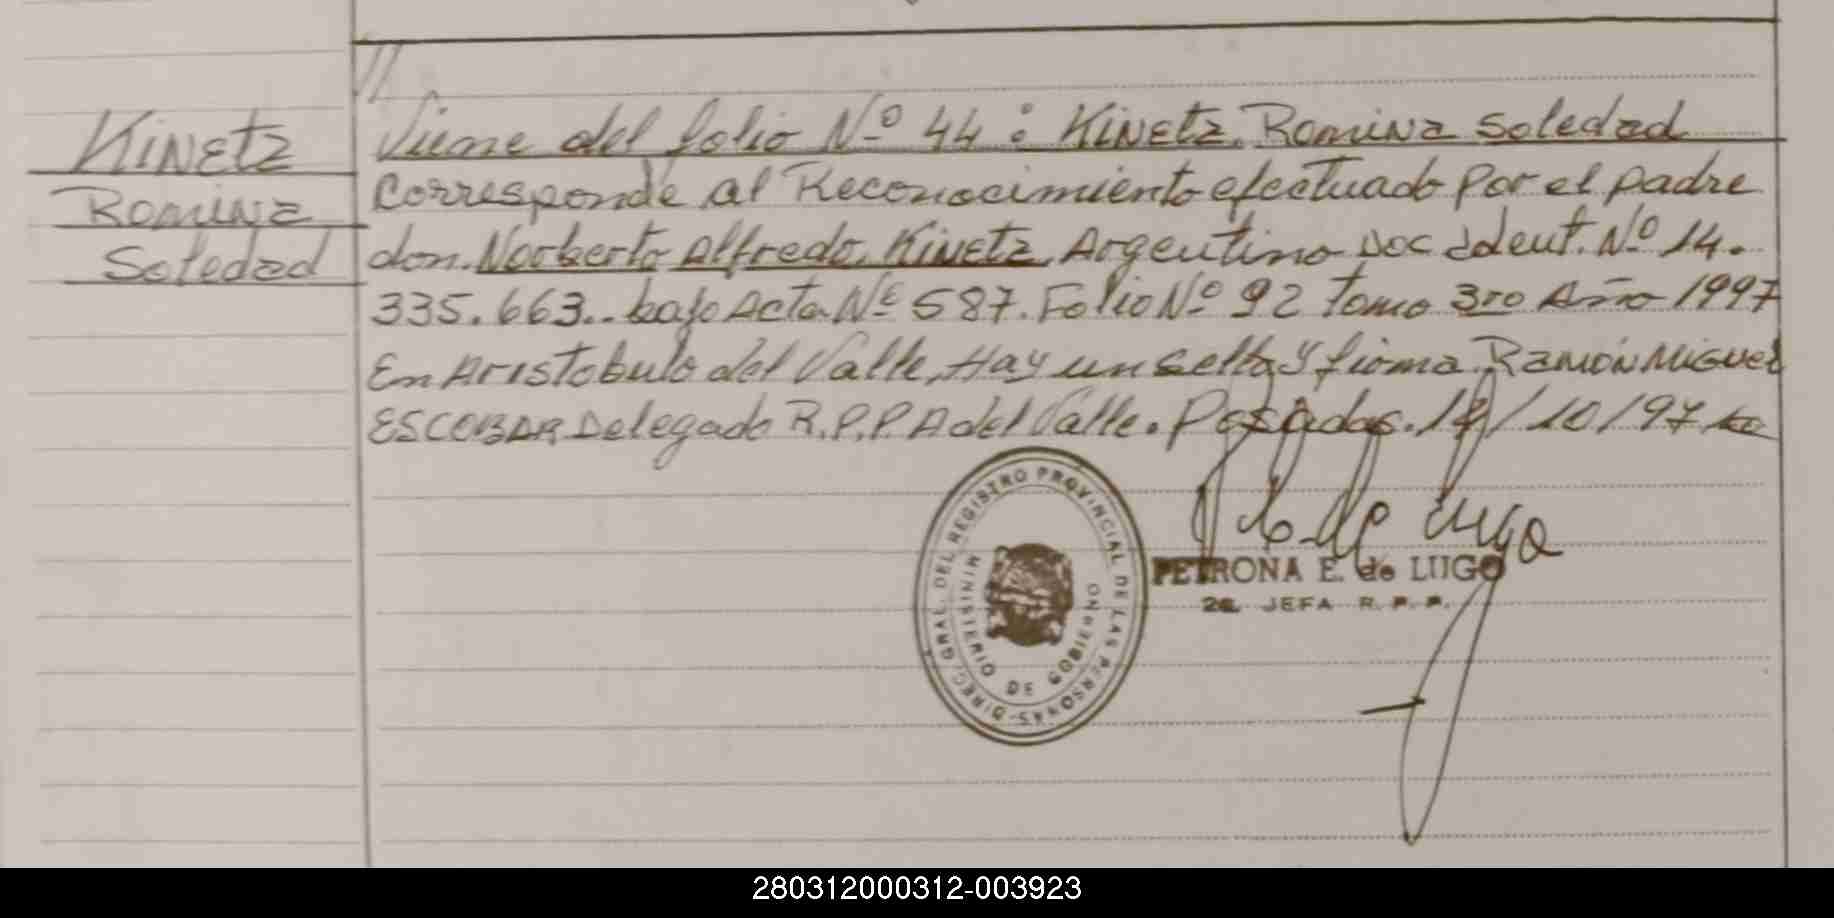 //
Kinetz
Romina
Soledad
Viene del folio Nº 44 : Kinetz, Romina Soledad
Corresponde al Reconocimiento efectuado por el padre
don. Norberto Alfredo, Kinetz, Argentino Doc Ident. Nº 14.
335.663.. bajo Acta Nº 587. Folio Nº 92 tomo 3ro Año 1997
En Aristobulo del Valle, Hay un sello y firma. Ramón Miguel
ESCOBAR Delegado R.P.P. A del Valle. Posadas. /10/97
DIREC. GRAL. DEL REGISTRO PROVINCIAL DE LAS PERSONAS
MINISTERIO DE GOBIERNO
de Lugo
PETRONA E. de LUGO
2a. JEFA R. P. P.
280312000312-003923